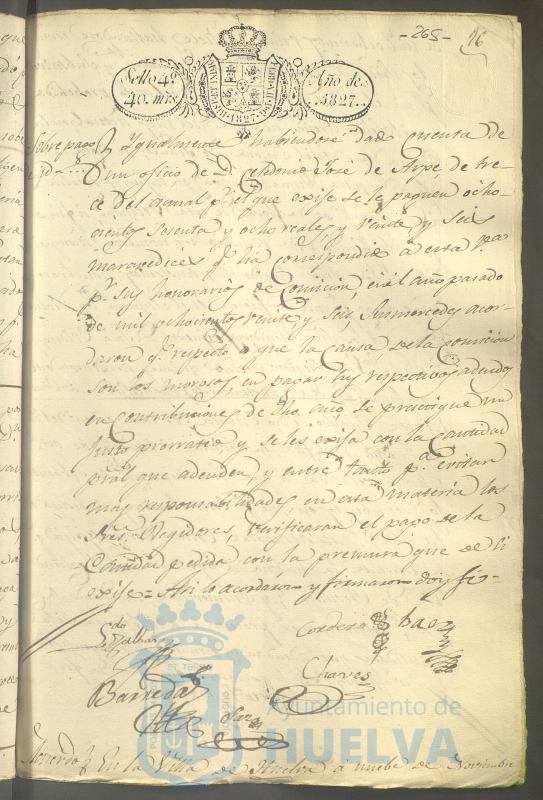 -265- 96
Sello 4º
40. mrs
HISPET INDR FERDIN VII D G
1827
Año de
1827.
Sobre pago Ygualmente habiendose dado cuenta de
un oficio de D. Celedonio José de Arpe, de tre-
ce del actual pr. el que exije se le paguen ocho-
cientos sesenta y ocho reales, y veinte y seis
maravedices qe. ha correspondido á esta va.
pr. sus honorarios de Comicion, en el año pasado
de mil ochocientos veinte y seis, Susmercedes acor-
daron qe. respecto á que la causa de la Comicion
son los morosos, en pagar sus respectivos adeudos
en Contribuciones de dho. año, se practique un
justo prorrateo, y se les exija con la Cantidad
pral que adeuden, y entre tanto pa. evitar
mas responsabilidades, en esta materia los
Sres. Regidores, verificaran el pago de la
Cantidad pedida con la premura que se
exije = Asi lo acordaron y firmaron doy fe =
Cordero Baez
Barreda Chaves
Paz
ET TERRE
Ayuntamiento de
HUELVA
Acuerdo En la Villa de Huelva á nuebe de Noviembre